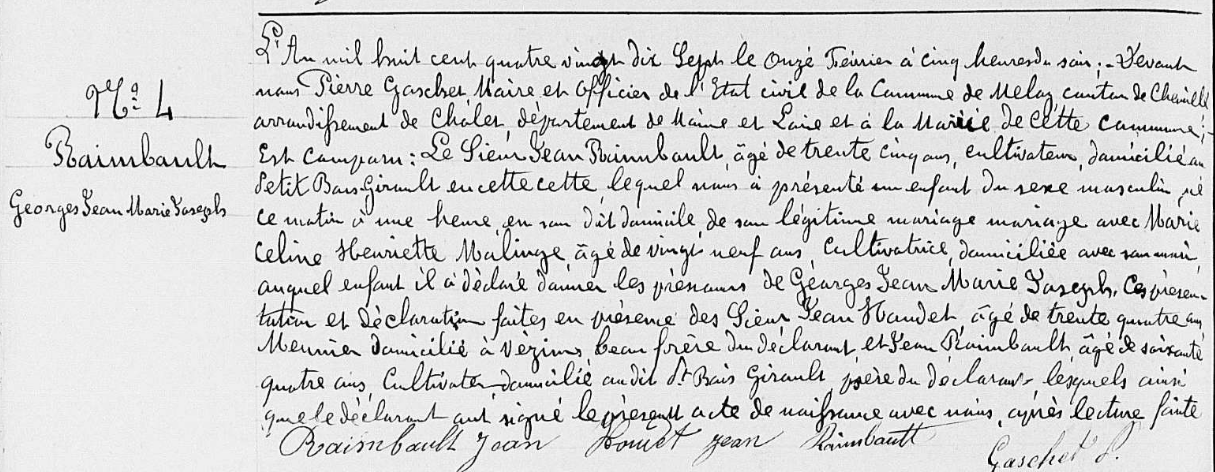 Nº 4
Raimbault
Georges Jean Marie Joseph
L'An mil huit cent quatre vingt dix Sept le Onze Février à cinq heures du soir ; Devant
nous Pierre Gaschet Maire et Officier de l'Etat civil de la Commune de Melay, canton de Chemillé
arrondissement de Cholet, département de Maine et Loire et à la Mairie de cette commune ;
Est comparu : Le Sieur Jean Raimbault, âgé de trente cinq ans, cultivateur, domicilié au
Petit Bois Girault en cette cette lequel nous à présenté un enfant du sexe masculin né
ce matin à une heure, en son dit domicile, de son légitime mariage mariage avec Marie
Celine Henriette Malinge, âgé de vingt neuf ans, Cultivatrice, domiciliée avec son mari,
auquel enfant il à déclaré donner les prénoms de Géorges Jean Marie Joseph. Ces présen-
tation et déclaration faites en présence des Sieur Jean Houdet, âgé de trente quatre ans
Meunier domicilié à Vézins, beau frère du déclarant, et Jean Raimbault, âgé de soixante
quatre ans, Cultivater domicilié audit Pt Bois Girault, père du déclarant lesquels ainsi
que le déclarant ont signé le présent acte de naissance avec nous, après lecture faite
Raimbault Jean Houdet Jean Raimbault
Gaschet P.